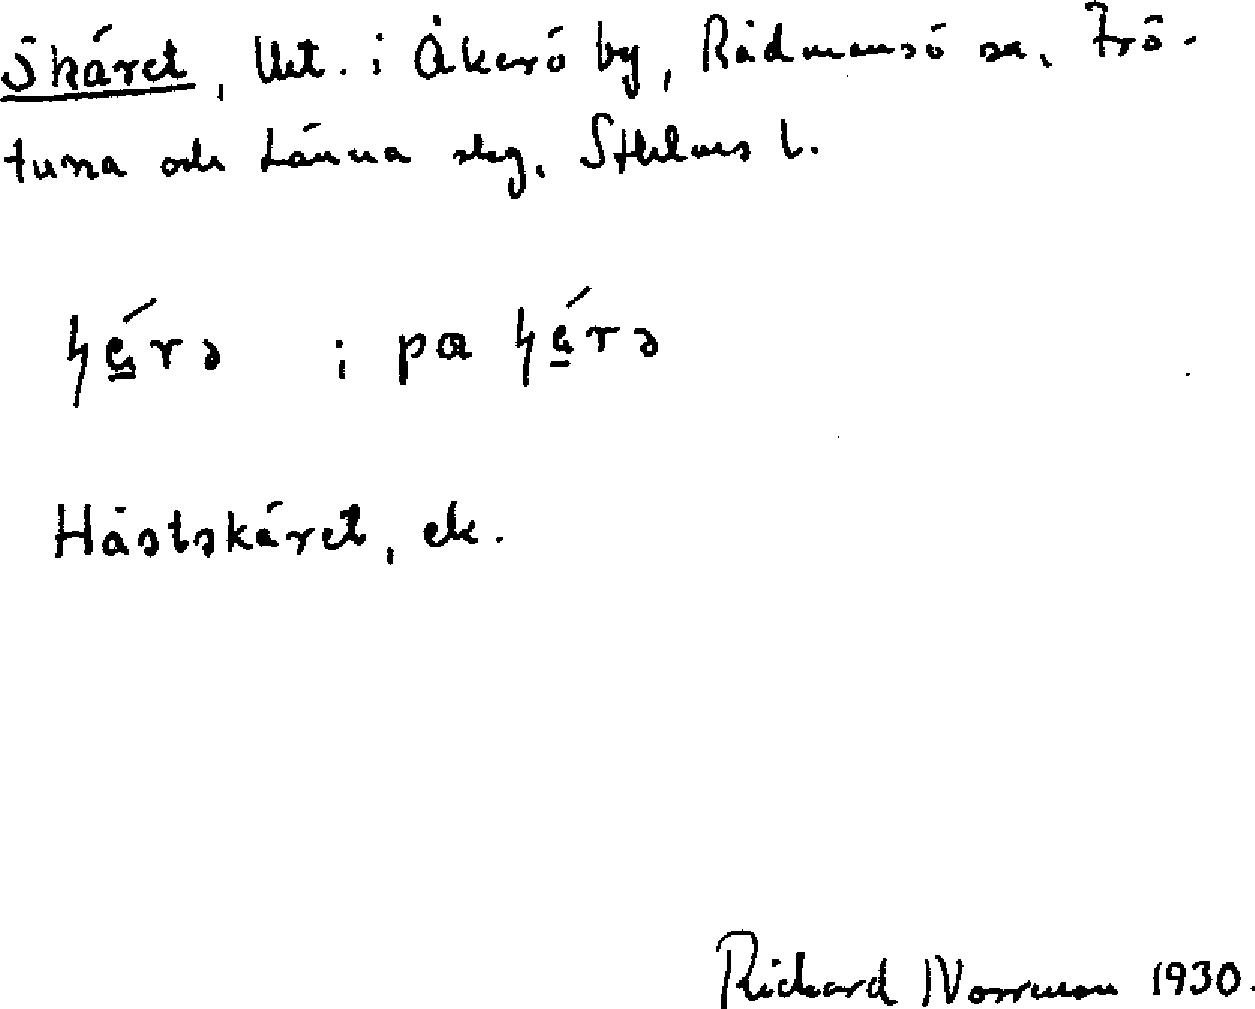 Skäret, Utt. i Åkerö by, Rådmansö sn, Frö-
tuna och Länna skg, Sthlms l.
i pa
Hästskäret, ek.
Richard Norrman 1930.